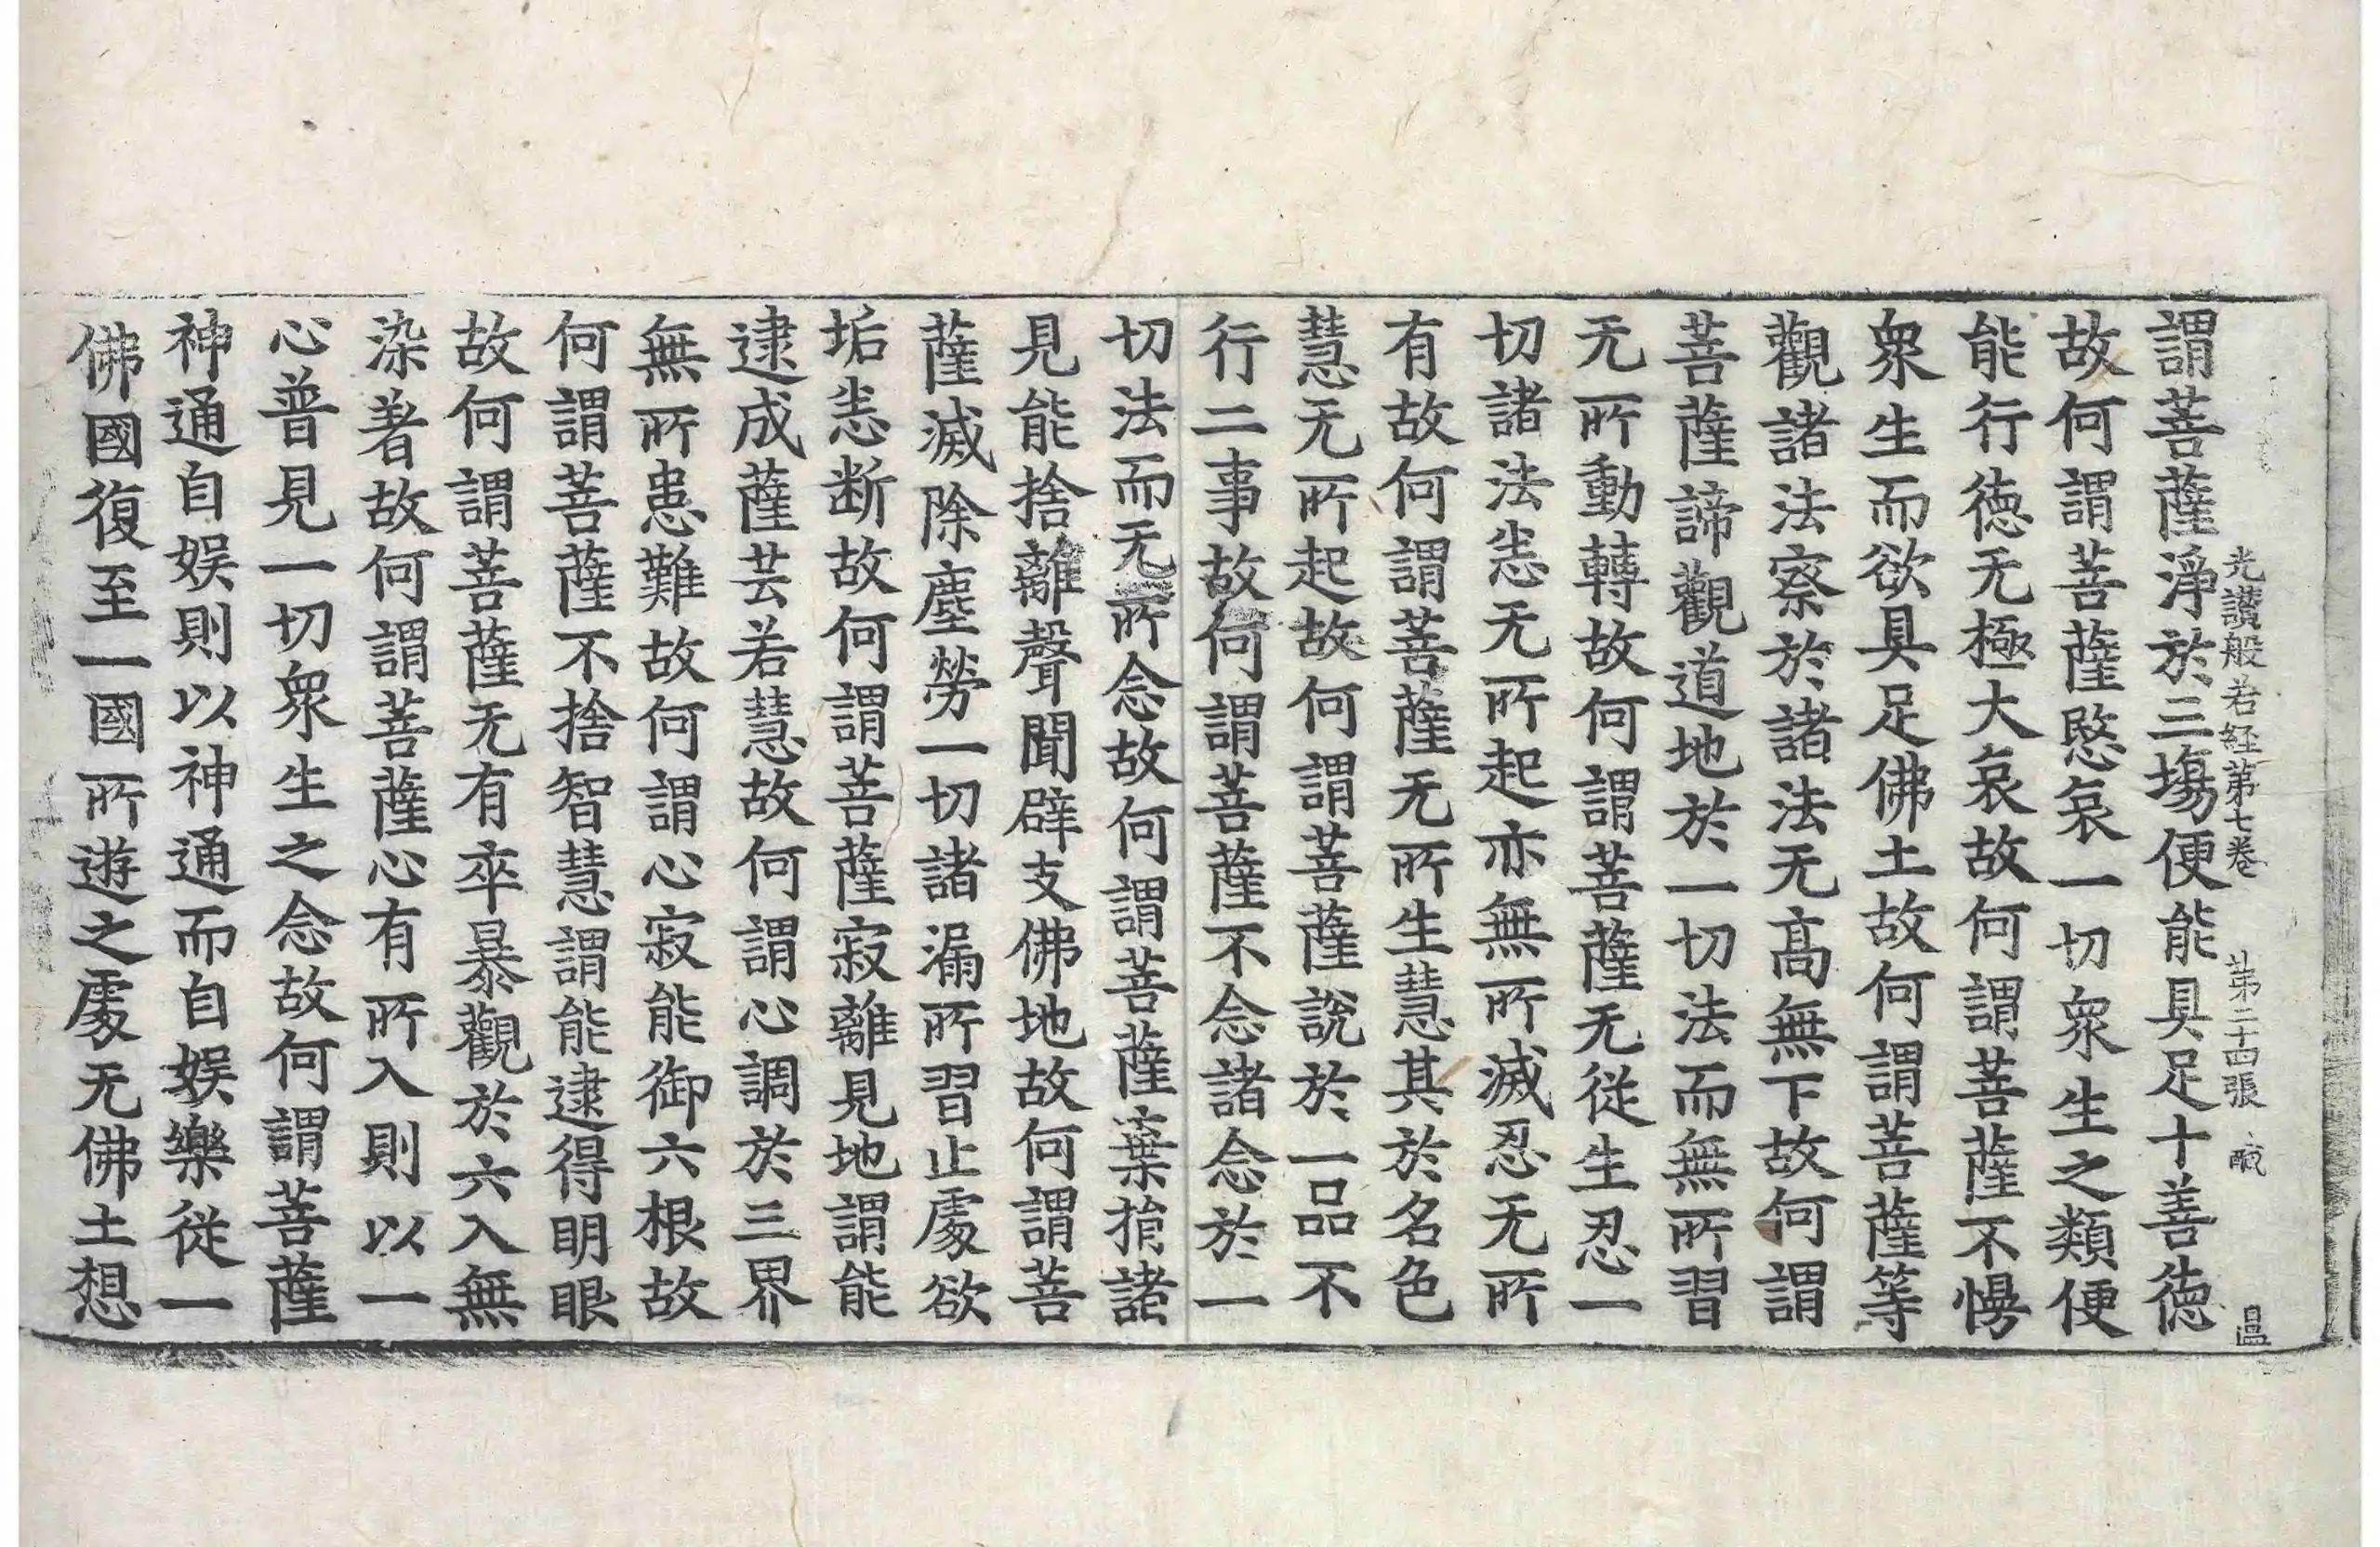 光讃般若経第七卷 第二十四張 鹹 温
謂菩薩淨於三塲便能具足十善徳
故何謂菩薩愍哀一切衆生之類便
能行徳无極大哀故何謂菩薩不慢
衆生而欲具足佛土故何謂菩薩等
觀諸法察於諸法无髙無下故何謂
菩薩諦觀道地於一切法而無所習
无所動轉故何謂菩薩无從生忍一
切諸法悉无所起亦無所滅忍无所
有故何謂菩薩无所生慧其於名色
慧无所起故何謂菩薩說於一品不
行二事故何謂菩薩不念諸念於一
切法而无所念故何謂菩薩棄捐諸
見能捨離聲聞辟支佛地故何謂菩
薩滅除塵勞一切諸漏所習止處欲
垢悉断故何謂菩薩寂離見地謂能
逮成薩芸若慧故何謂心調於三界
無所患難故何謂心寂能御六根故
何謂菩薩不捨智慧謂能逮得明眼
故何謂菩薩无有卒暴觀於六入無
染著故何謂菩薩心有所入則以一
心普見一切衆生之念故何謂菩薩
神通自娱則以神通而自娱樂從一
佛國復至一國所遊之處无佛土想